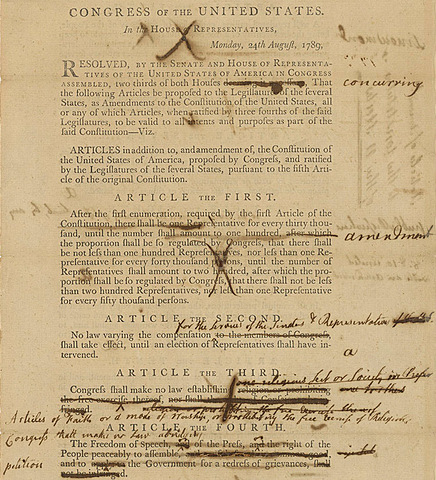 CONGRESS OF THE UNITED STATES.
In the House of Representatives,
Monday, 24th August, 1789,
RESOLVED, BY THE SENATE AND HOUSE OF REPRESENTA-
TIVES OF THE UNITED STATES OF AMERICA IN CONGRESS
ASSEMBLED, two thirds of both Houses That concurring
the following Articles be proposed to the Legislatures of the several
States, as Amendments to the Constitution of the United States, all
or any of which Articles, when ratified by three fourths of the said
Legislatures, to be valid to all intents and purposes as part of the
said Constitution—Viz.
ARTICLES in addition to, and amendment of, the Constitution of
the United States of America, proposed by Congress, and ratified
by the Legislatures of the several States, pursuant to the fifth Arti-
cle of the original Constitution.
ARTICLE THE FIRST.
After the first enumeration, required by the first Article of the
Constitution, there shall be one Representative for every thirty thou-
sand, until the number shall amount to one hundred, after which amendment
the proportion shall be so regulated by Congress, that there shall
be not less than one hundred Representatives, nor less than one Re-
presentative for every forty thousand persons, until the number of
Representatives shall amount to two hundred, after which the pro-
portion shall be so regulated by Congress, that there shall not be less
than two hundred Representatives, nor less than one Representative
for every fifty thousand persons.
ARTICLE THE SECOND.
for the services of the Senators & Representatives
No law varying the compensation to the members of Congress,
shall take effect, until an election of Representatives shall have in- a
tervened.
ARTICLE THE THIRD.
one religious Sect or Society in Prefer
Congress shall make no law establishing religion or prohibiting
the free exercise thereof, nor shall
Articles of Faith or a mode of Worship or prohibiting the free Exercise of Religion,
ARTICLE THE FOURTH.
Congress shall make no law abridging
The Freedom of Speech, of the Press, and the right of the
People peaceably to assemble,
petition
and to the Government for a redress of grievances, shall
not be infringed.